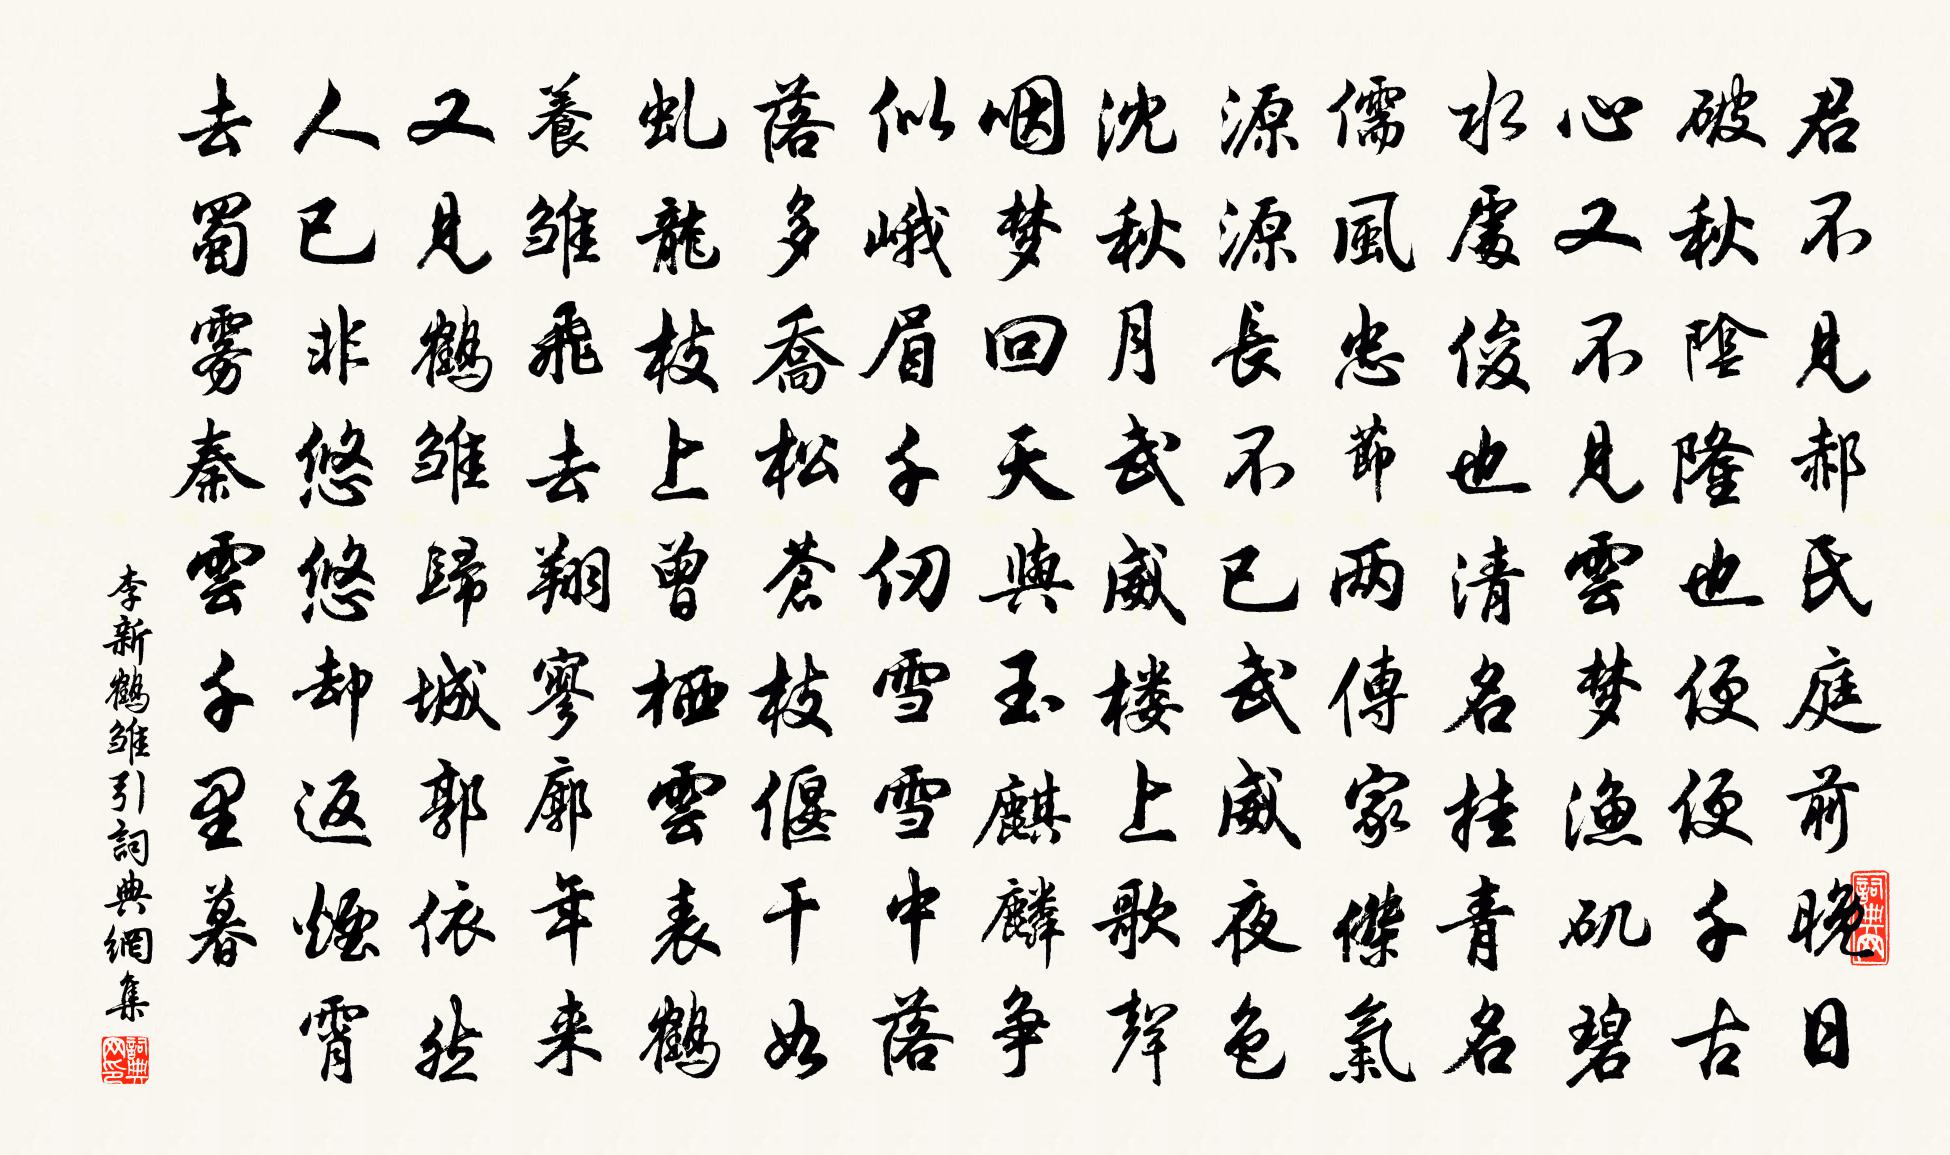 君不見郝氏庭前晚日
破秋陰隆也便便千古
心又不見雲梦漁矶碧
水處俊也清名挂青名
儒風忠節两傳家傑氣
源源長不已武威夜色
沈秋月武威楼上歌聲
咽梦回天與玉麒麟争
似峨眉千仞雪雪中落
落多喬松蒼枝偃干如
虬龍枝上曾栖雲表鶴
養雏飛去翔寥廓年来
又見鶴雏歸城郭依然
人已非悠悠却返煙霄
去蜀雾秦雲千里暮
李新鶴雏引詞典網集
詞典網
詞典网印